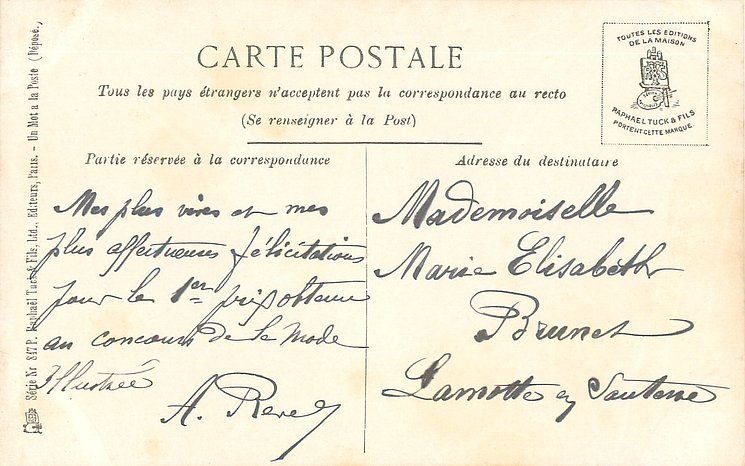 CARTE POSTALE
Tous les pays étrangers n'acceptent pas la correspondance au recto
(Se renseigner à la Post)
TOUTES LES EDITIONS
DE LA MAISON
RAPHAEL TUCK & FILS
PORTENT CETTE MARQUE.
Partie réservée à la correspondance
Mes plus vives et mes
plus affectueuses félicitations
pour le 1er prix obtenu
au concours de la Mode
Illustrée
A.
Adresse du destinataire
Mademoiselle
Marie Elisabeth
Brunet
Lamotte en Santerre
Série Nr 847 P. Raphaël Tuck & Fils, Ltd., Editeurs, Paris. - Un Mot a la Poste (Déposé.)